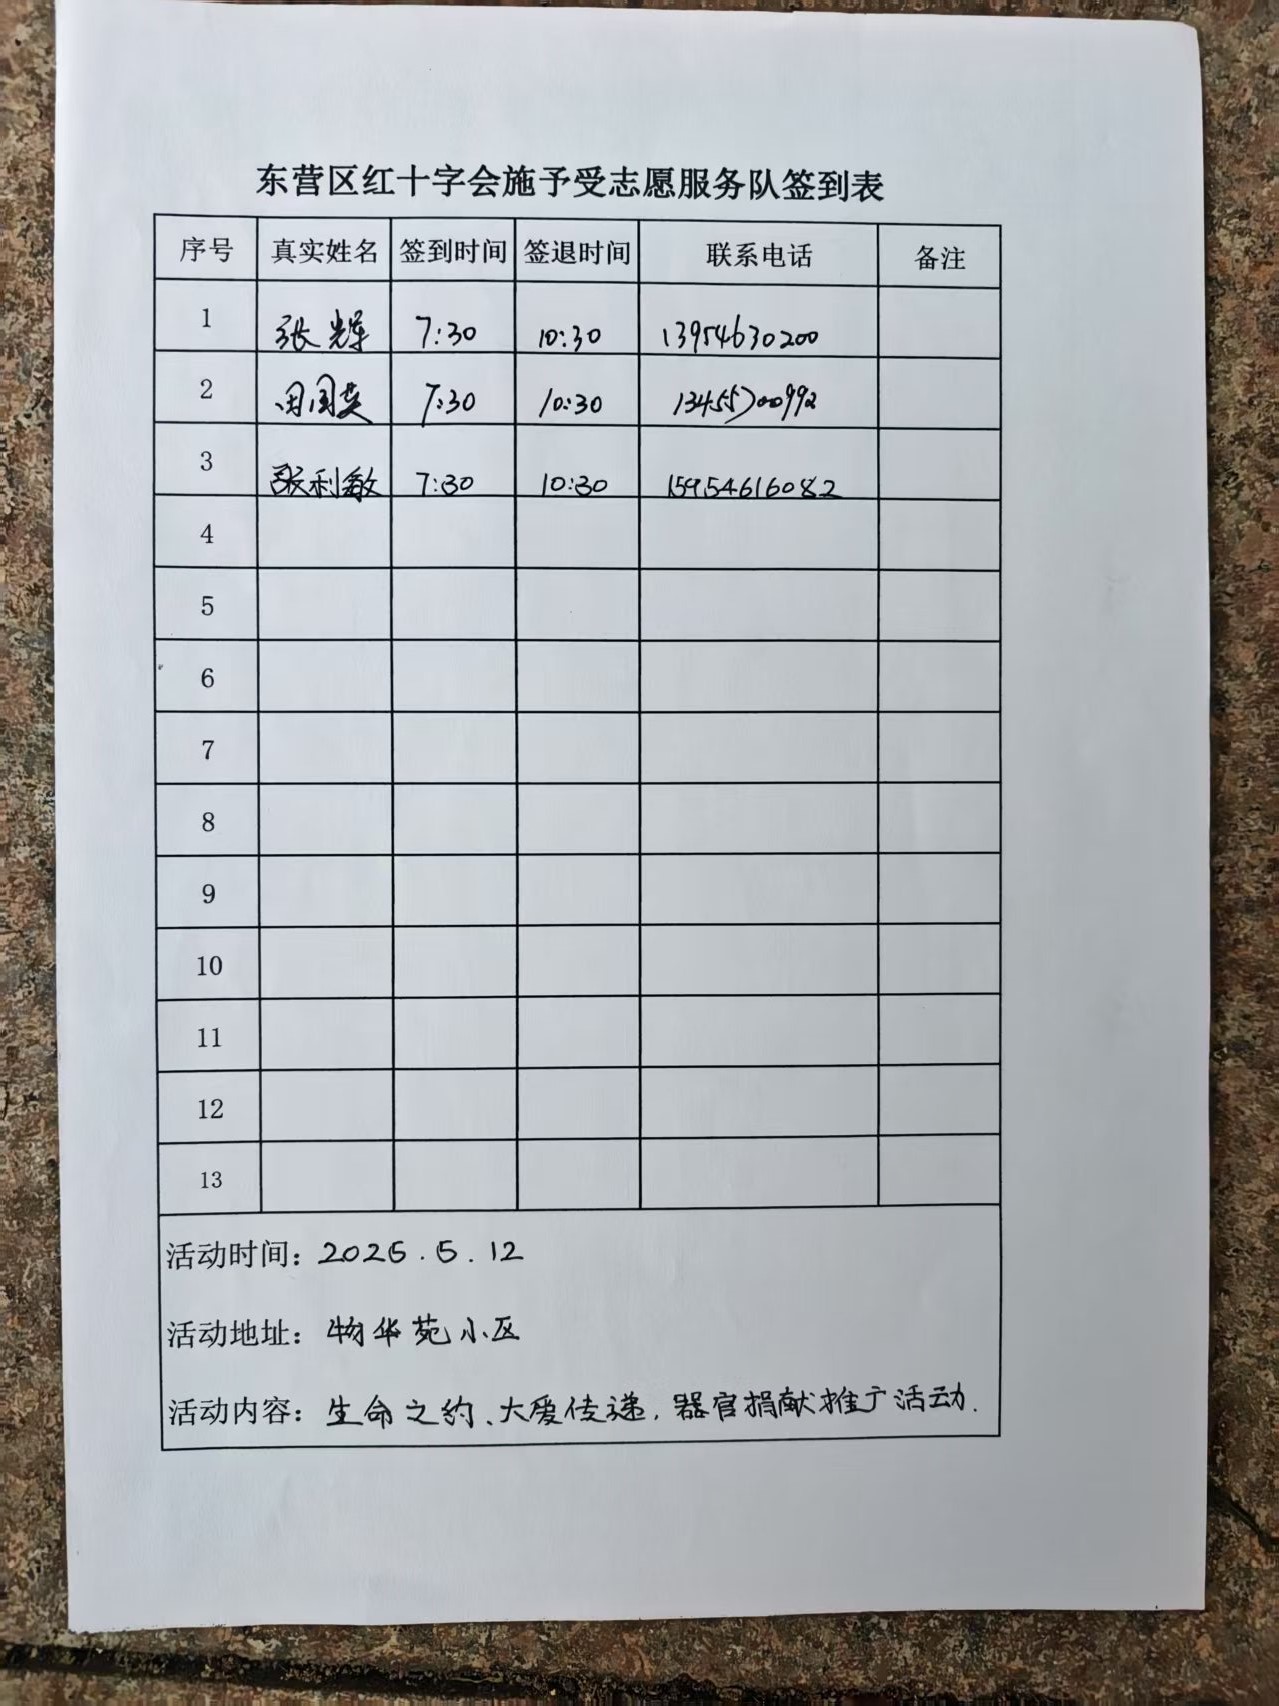 东营区红十字会施予受志愿服务队签到表
序号 真实姓名 签到时间 签退时间 联系电话 备注
1 张辉 7:30 10:30 13954630200
2 田国英 7:30 10:30 13455700992
3 张利敏 7:30 10:30 15954616082
4
5
6
7
8
9
10
11
12
13
活动时间：2025.5.12
活动地址：物华苑小区
活动内容：生命之约、大爱传递，器官捐献推广活动.